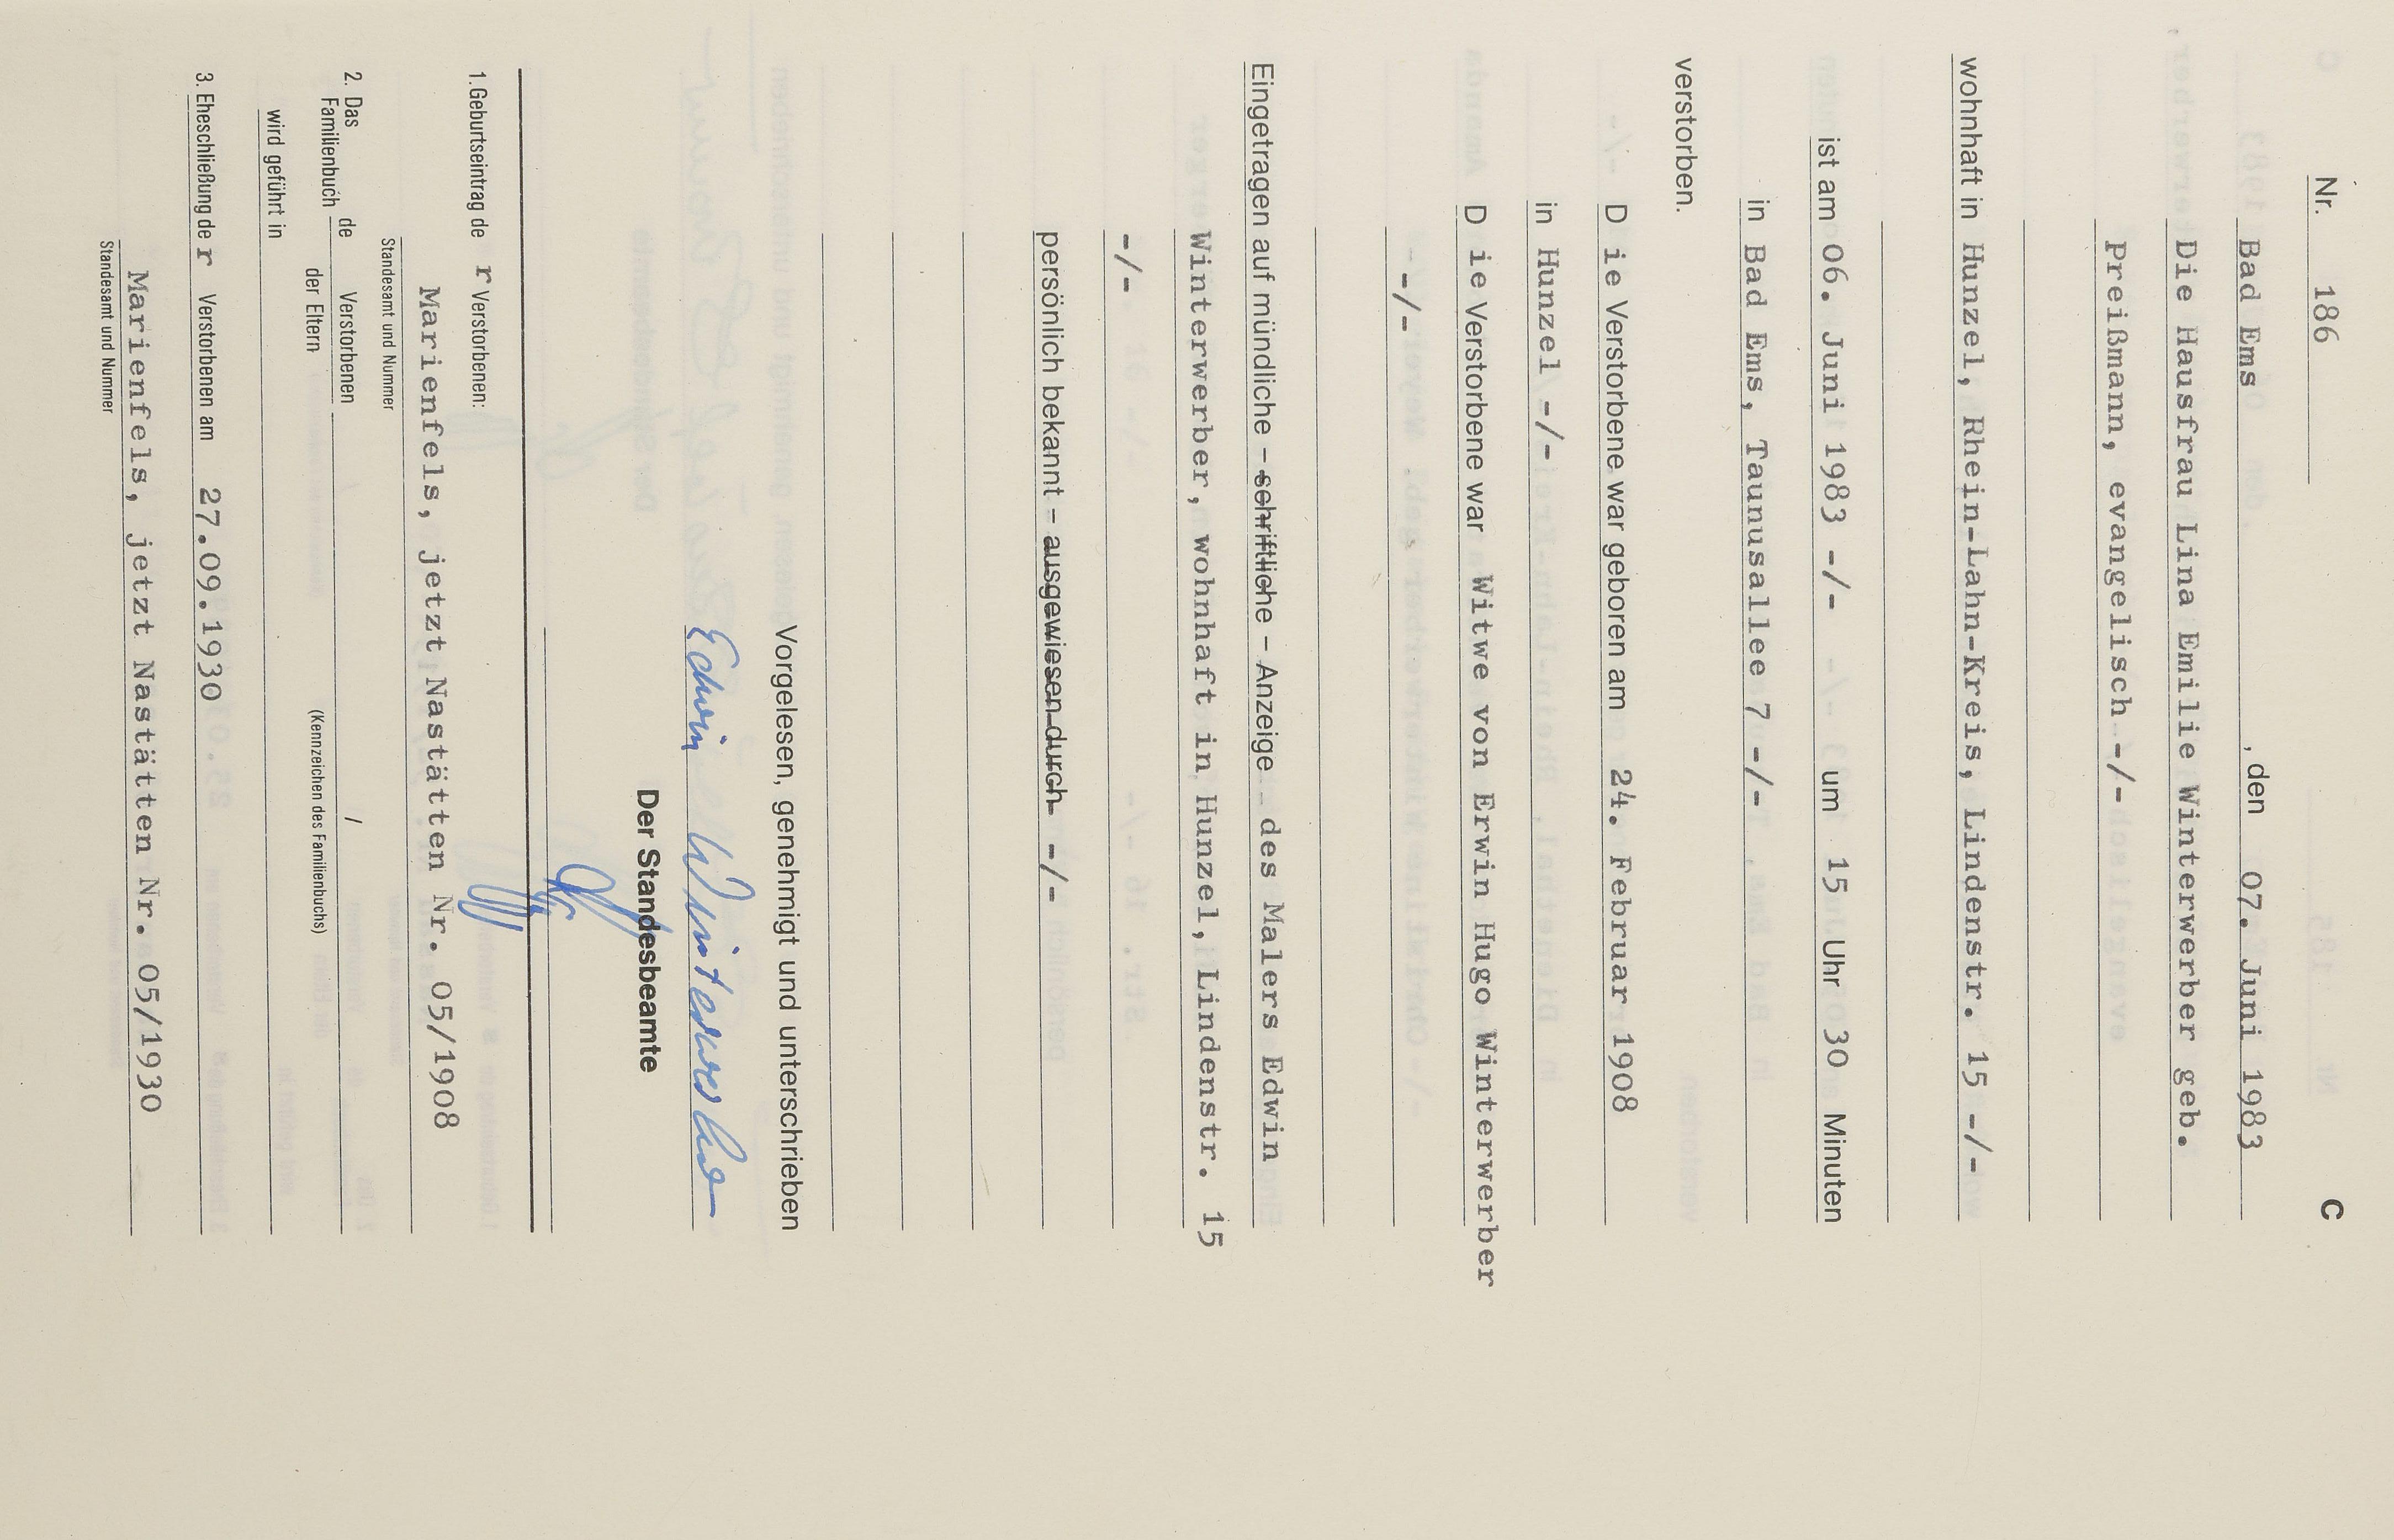 Nr. 186 C
Bad Ems , den 07. Juni 1983
Die Hausfrau Lina Emilie Winterwerber geb.
Preißmann, evangelisch -/-
wohnhaft in Hunzel, Rhein-Lahn-Kreis, Lindenstr. 15 -/-
ist am 06. Juni 1983 -/- um 15 Uhr 30 Minuten
in Bad Ems, Taunusallee 7 -/-
verstorben.
D ie Verstorbene war geboren am 24. Februar 1908
in Hunzel -/-
D ie Verstorbene war Witwe von Erwin Hugo Winterwerber
-/-
Eingetragen auf mündliche – schriftliche – Anzeige des Malers Edwin
Winterwerber, wohnhaft in Hunzel, Lindenstr. 15
-/-
persönlich bekannt – ausgewiesen durch -/-
Vorgelesen, genehmigt und unterschrieben
Edwin Winterwerber
Der Standesbeamte
1. Geburtseintrag de r Verstorbenen:
Marienfels, jetzt Nastätten Nr. 05/1908
Standesamt und Nummer
2. Das Familienbuch de Verstorbenen /
der Eltern (Kennzeichen des Familienbuchs)
wird geführt in
3. Eheschließung de r Verstorbenen am 27.09.1930
Marienfels, jetzt Nastätten Nr. 05/1930
Standesamt und Nummer